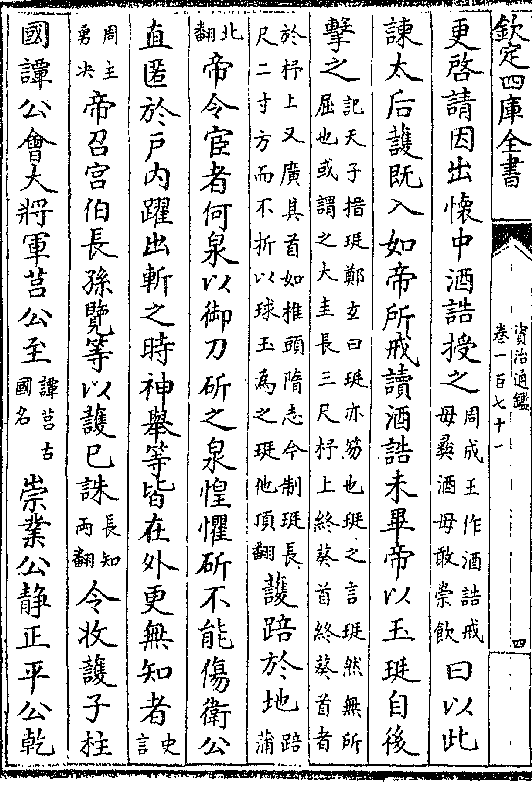 欽定四庫全書
資治通鑑
卷一百七十一
四
更啓請因出懷中酒誥授之周成王作酒誥戒
毋彞酒毋敢崇飲曰以此
諫太后護既入如帝所戒讀酒誥未畢帝以玉珽自後
擊之記天子搢珽鄭玄曰珽亦笏也珽之言珽然無所
屈也或謂之大圭長三尺杼上終葵首終葵首者
於杼上又廣其首如椎頭隋志今制珽長
尺二寸方而不折以球玉為之珽他頂翻護踣於地踣蒲
北翻帝令宦者何泉以御刀斫之泉惶懼斫不能傷衛公
直匿於戶内躍出斬之時神舉等皆在外更無知者史言
周主勇决帝召宫伯長孫覽等以護已誅長知兩翻令收護子柱
國譚公會大將軍莒公至譚莒古國名崇業公静正平公乾